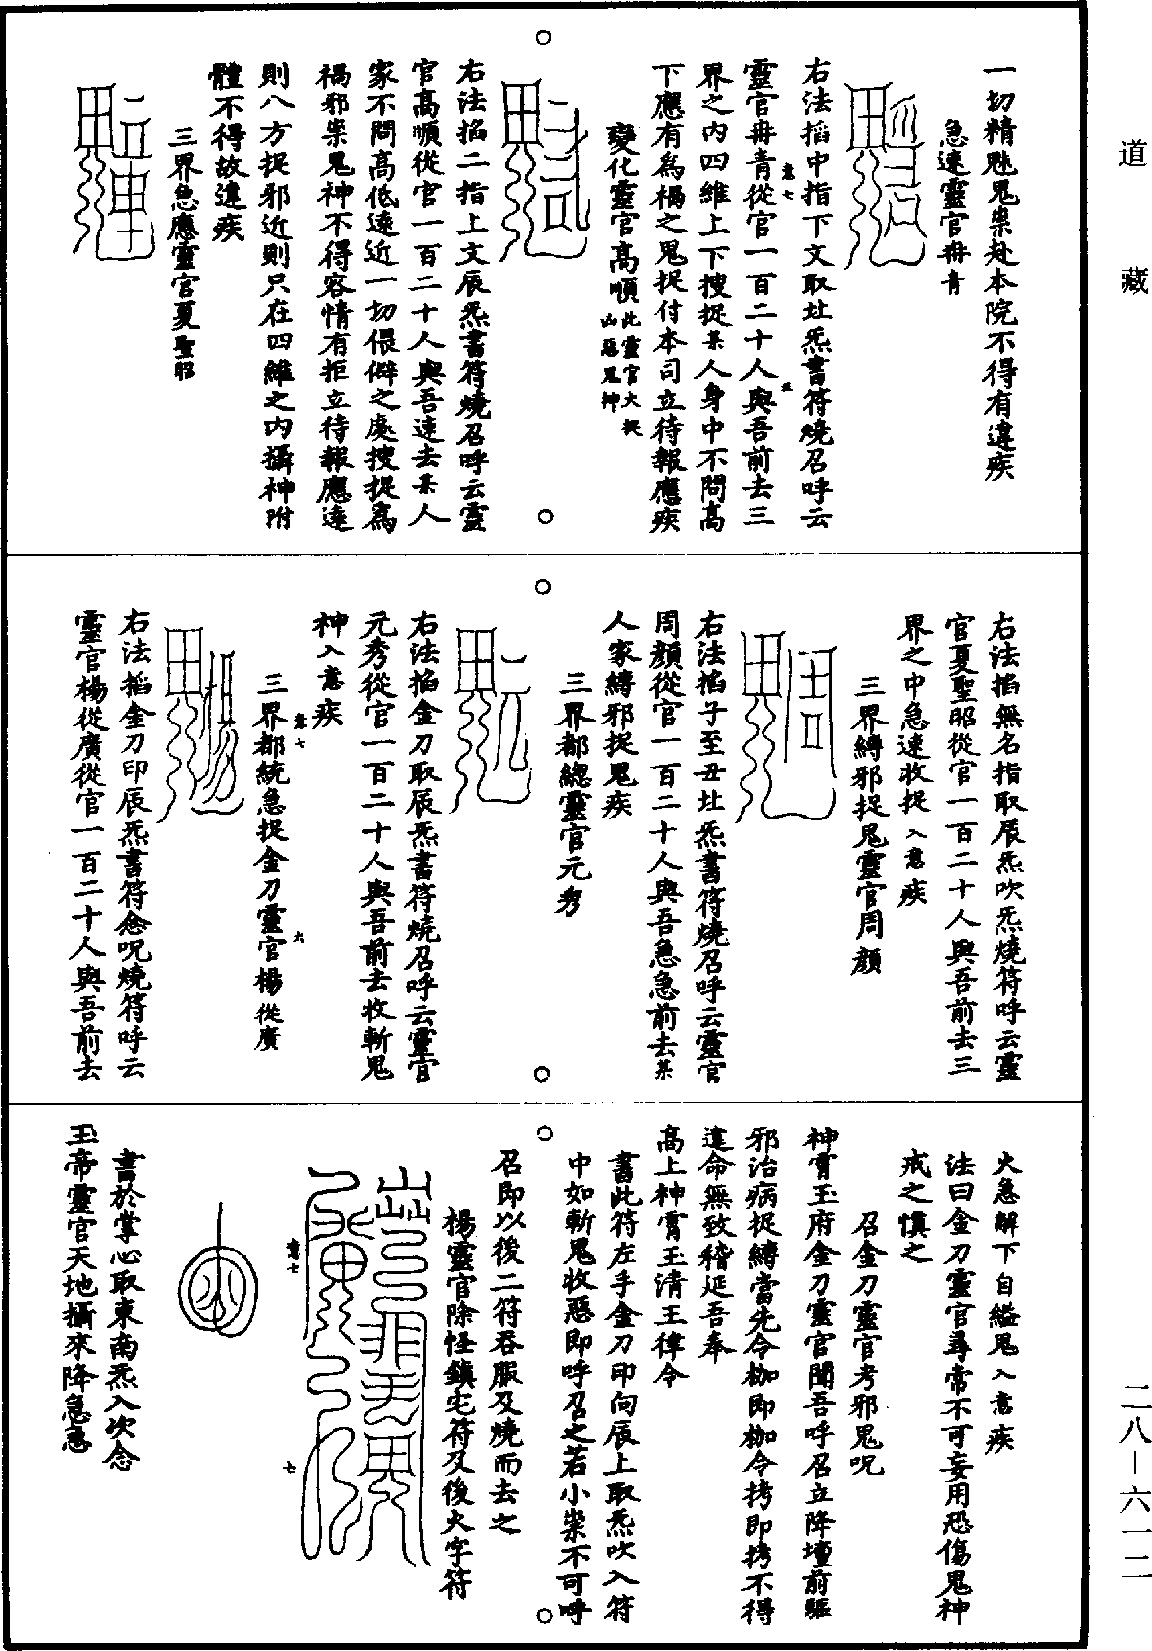 道藏
一切精魅鬼祟赴本院不得有違疾
急速靈官冉青
右法掐中指下文取炁書符燒召呼云
靈官冉青從官一百二十人與吾前去三
界之內四維上下搜捉某人身中不問高
下應有為禍之鬼捉付本司立待報應疾
變化靈官高順此靈官大捉
山惡鬼神
右法掐二指上文辰炁書符燒召呼云靈
官高順從官一百二十人與吾速去某人
家不問高低遠近一切偎僻之處搜捉為
禍邪祟鬼神不得容情有拒立待報應遠
則八方捉邪近則只在四維之內攝神附
體不得故違疾
三界急應靈官夏聖昭
右法掐無名指取辰炁吹炁燒符呼云靈
官夏聖昭從官一百二十人與吾前去三
界之中急速收捉入意疾
三界縛邪捉鬼靈官周顏
右法掐子至丑炁書符燒召呼云靈官
周顏從官一百二十人與吾急急前去某
人家縛邪捉鬼疾
三界都總靈官元秀
右法掐金刀取辰炁書符燒召呼云靈官
元秀從官一百二十人與吾前去收斬鬼
神入意疾
三界都統急捉金刀靈官楊從廣
右法掐金刀印辰炁書符念呪燒符呼云
靈官楊從廣從官一百二十人與吾前去
火急解下自縊鬼入意疾
法曰金刀靈官尋常不可妄用恐傷鬼神
戒之慎之
召金刀靈官考邪鬼呪
神霄玉府金刀靈官聞吾呼召立降壇前驅
邪治病捉縛當先令枷即枷令拷即拷不得
違命無致稽延吾奉
高上神霄玉清王律令
書此符左手金刀印向辰上取炁吹入符
中如斬鬼收惡即呼召之若小祟不可呼
召即以後二符吞服及燒而去之
楊靈官除怪鎮宅符及後火字符
書於掌心取東南炁入次念
玉帝靈官天地攝來降急急
二八—六一二